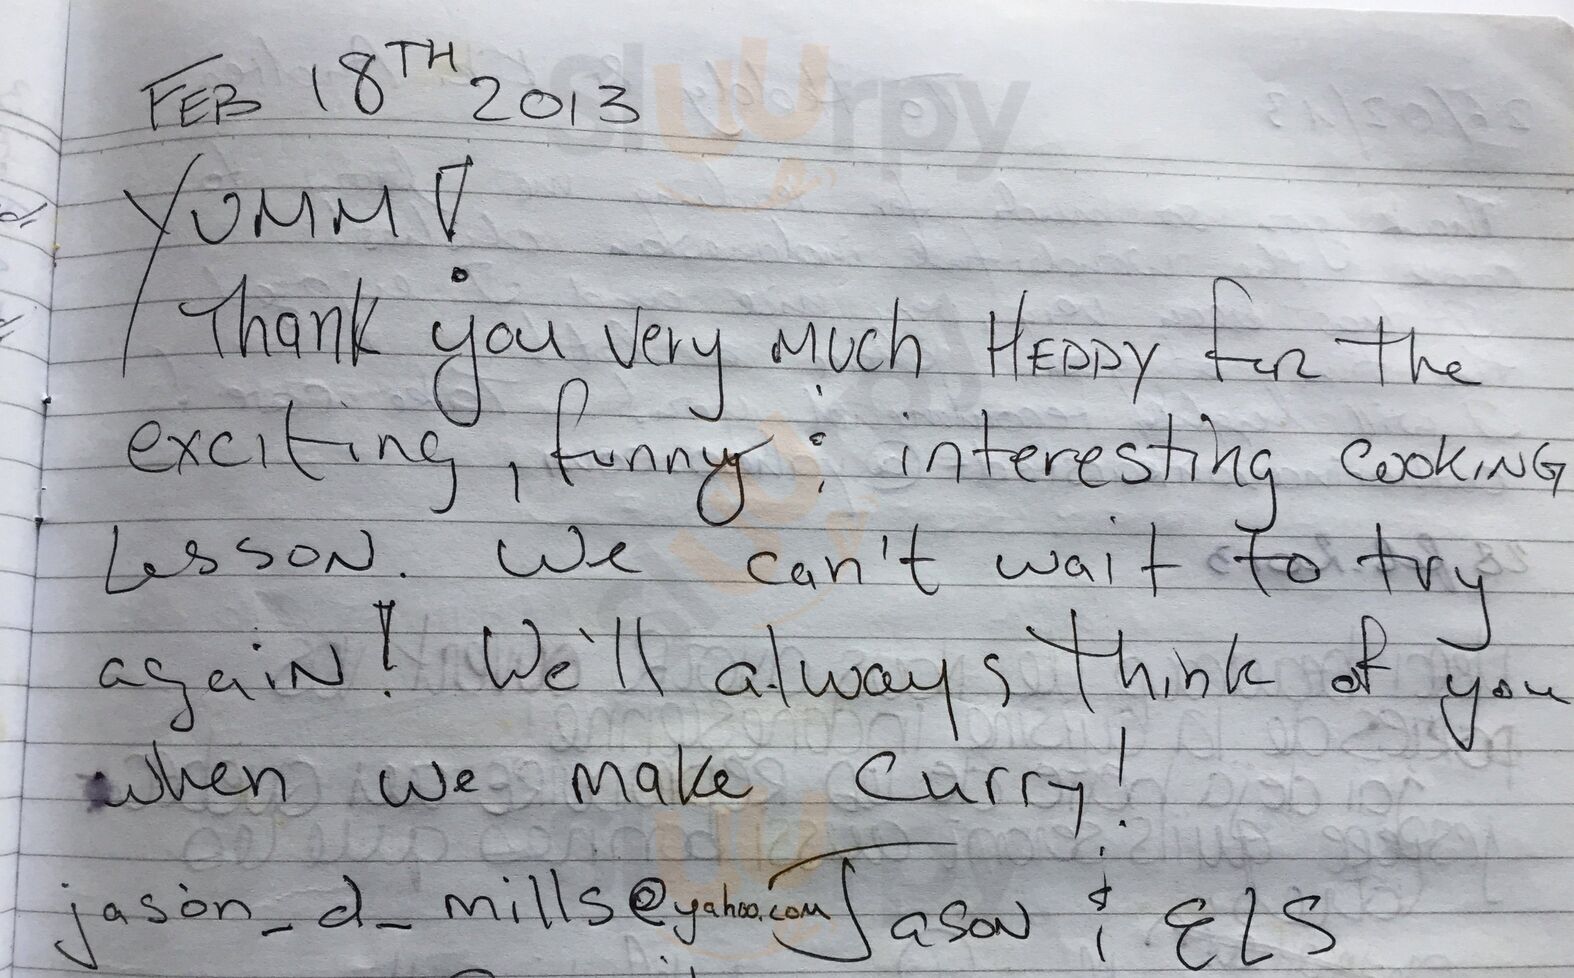 FEB 18TH 2013
YUMM!
Thank you very much HEDDY for the
exciting, funny & interesting cooking
Lesson. We can't wait to try
again! We'll always think of you
when we make curry!
jason_d_mills@yahoo.com Jason & ELS